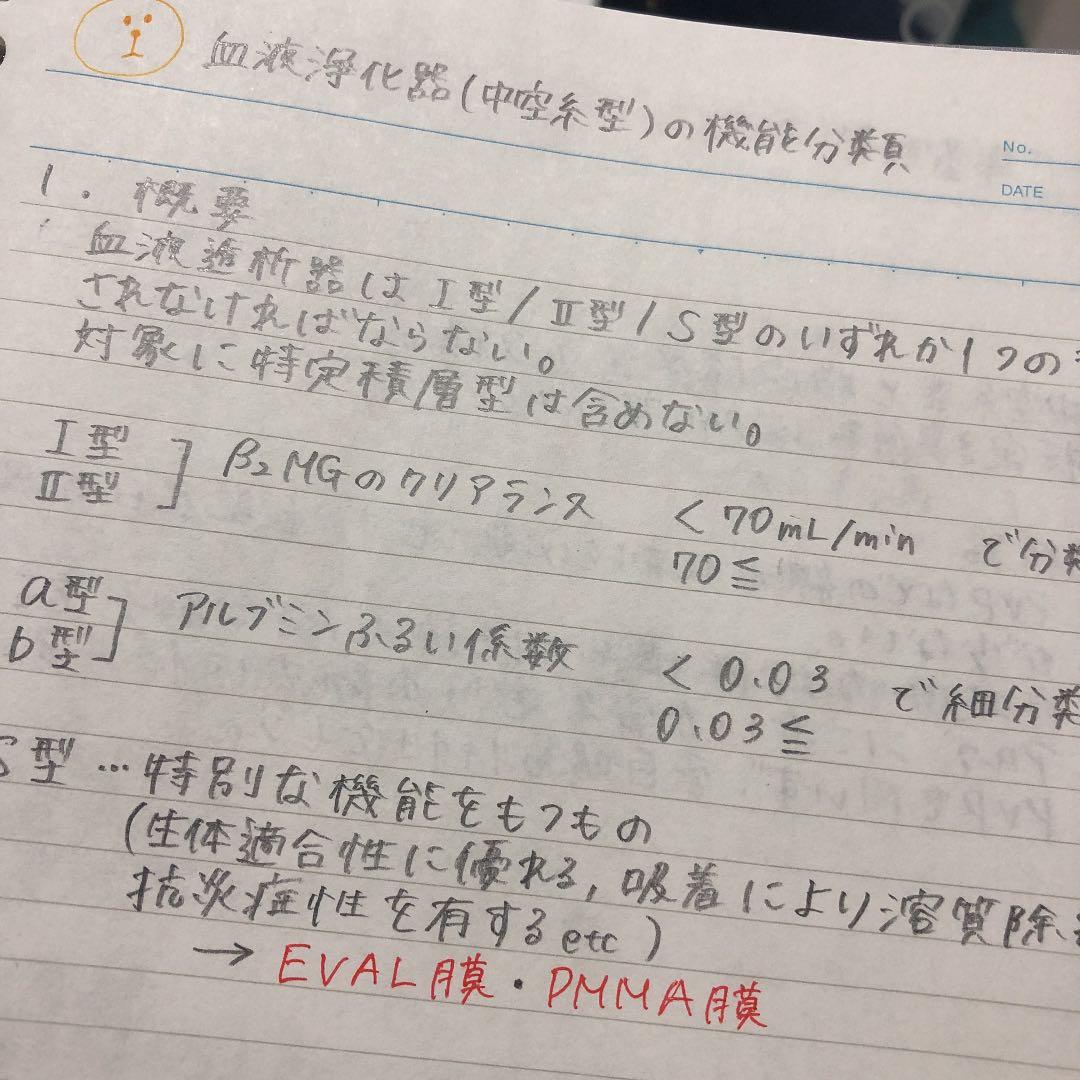 血液浄化器(中空糸型)の機能分類
No.
DATE
1. 概要
血液透析器はⅠ型/Ⅱ型/S型のいずれか1つの
されなければならない。
対象に特定積層型は含めない。
Ⅰ型
Ⅱ型
β₂MGのクリアランス <70mL/min で分類
70≦
a型
b型
アルブミンふるい係数 <0.03 で細分類
0.03≦
S型…特別な機能をもつもの
(生体適合性に優れる,吸着により溶質除
抗炎症性を有するetc)
→EVAL膜・PMMA膜